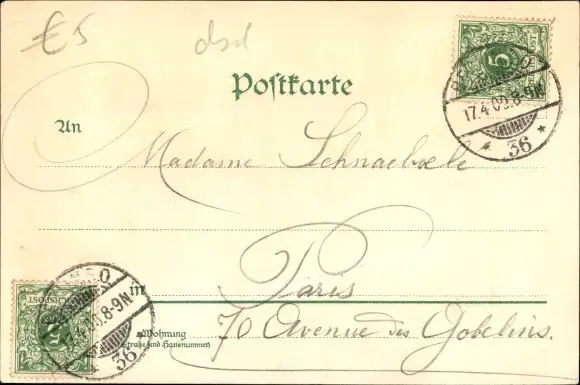 €5 dsd
5
17.4.00.8-9N
* 36 *
Postkarte
An
Madame Schnaebele
in Paris
Wohnung
(Straße und Hausnummer)
70 Avenue des Gobelins.
5
REICHSPOST
17.4.00.8-9N
* 36